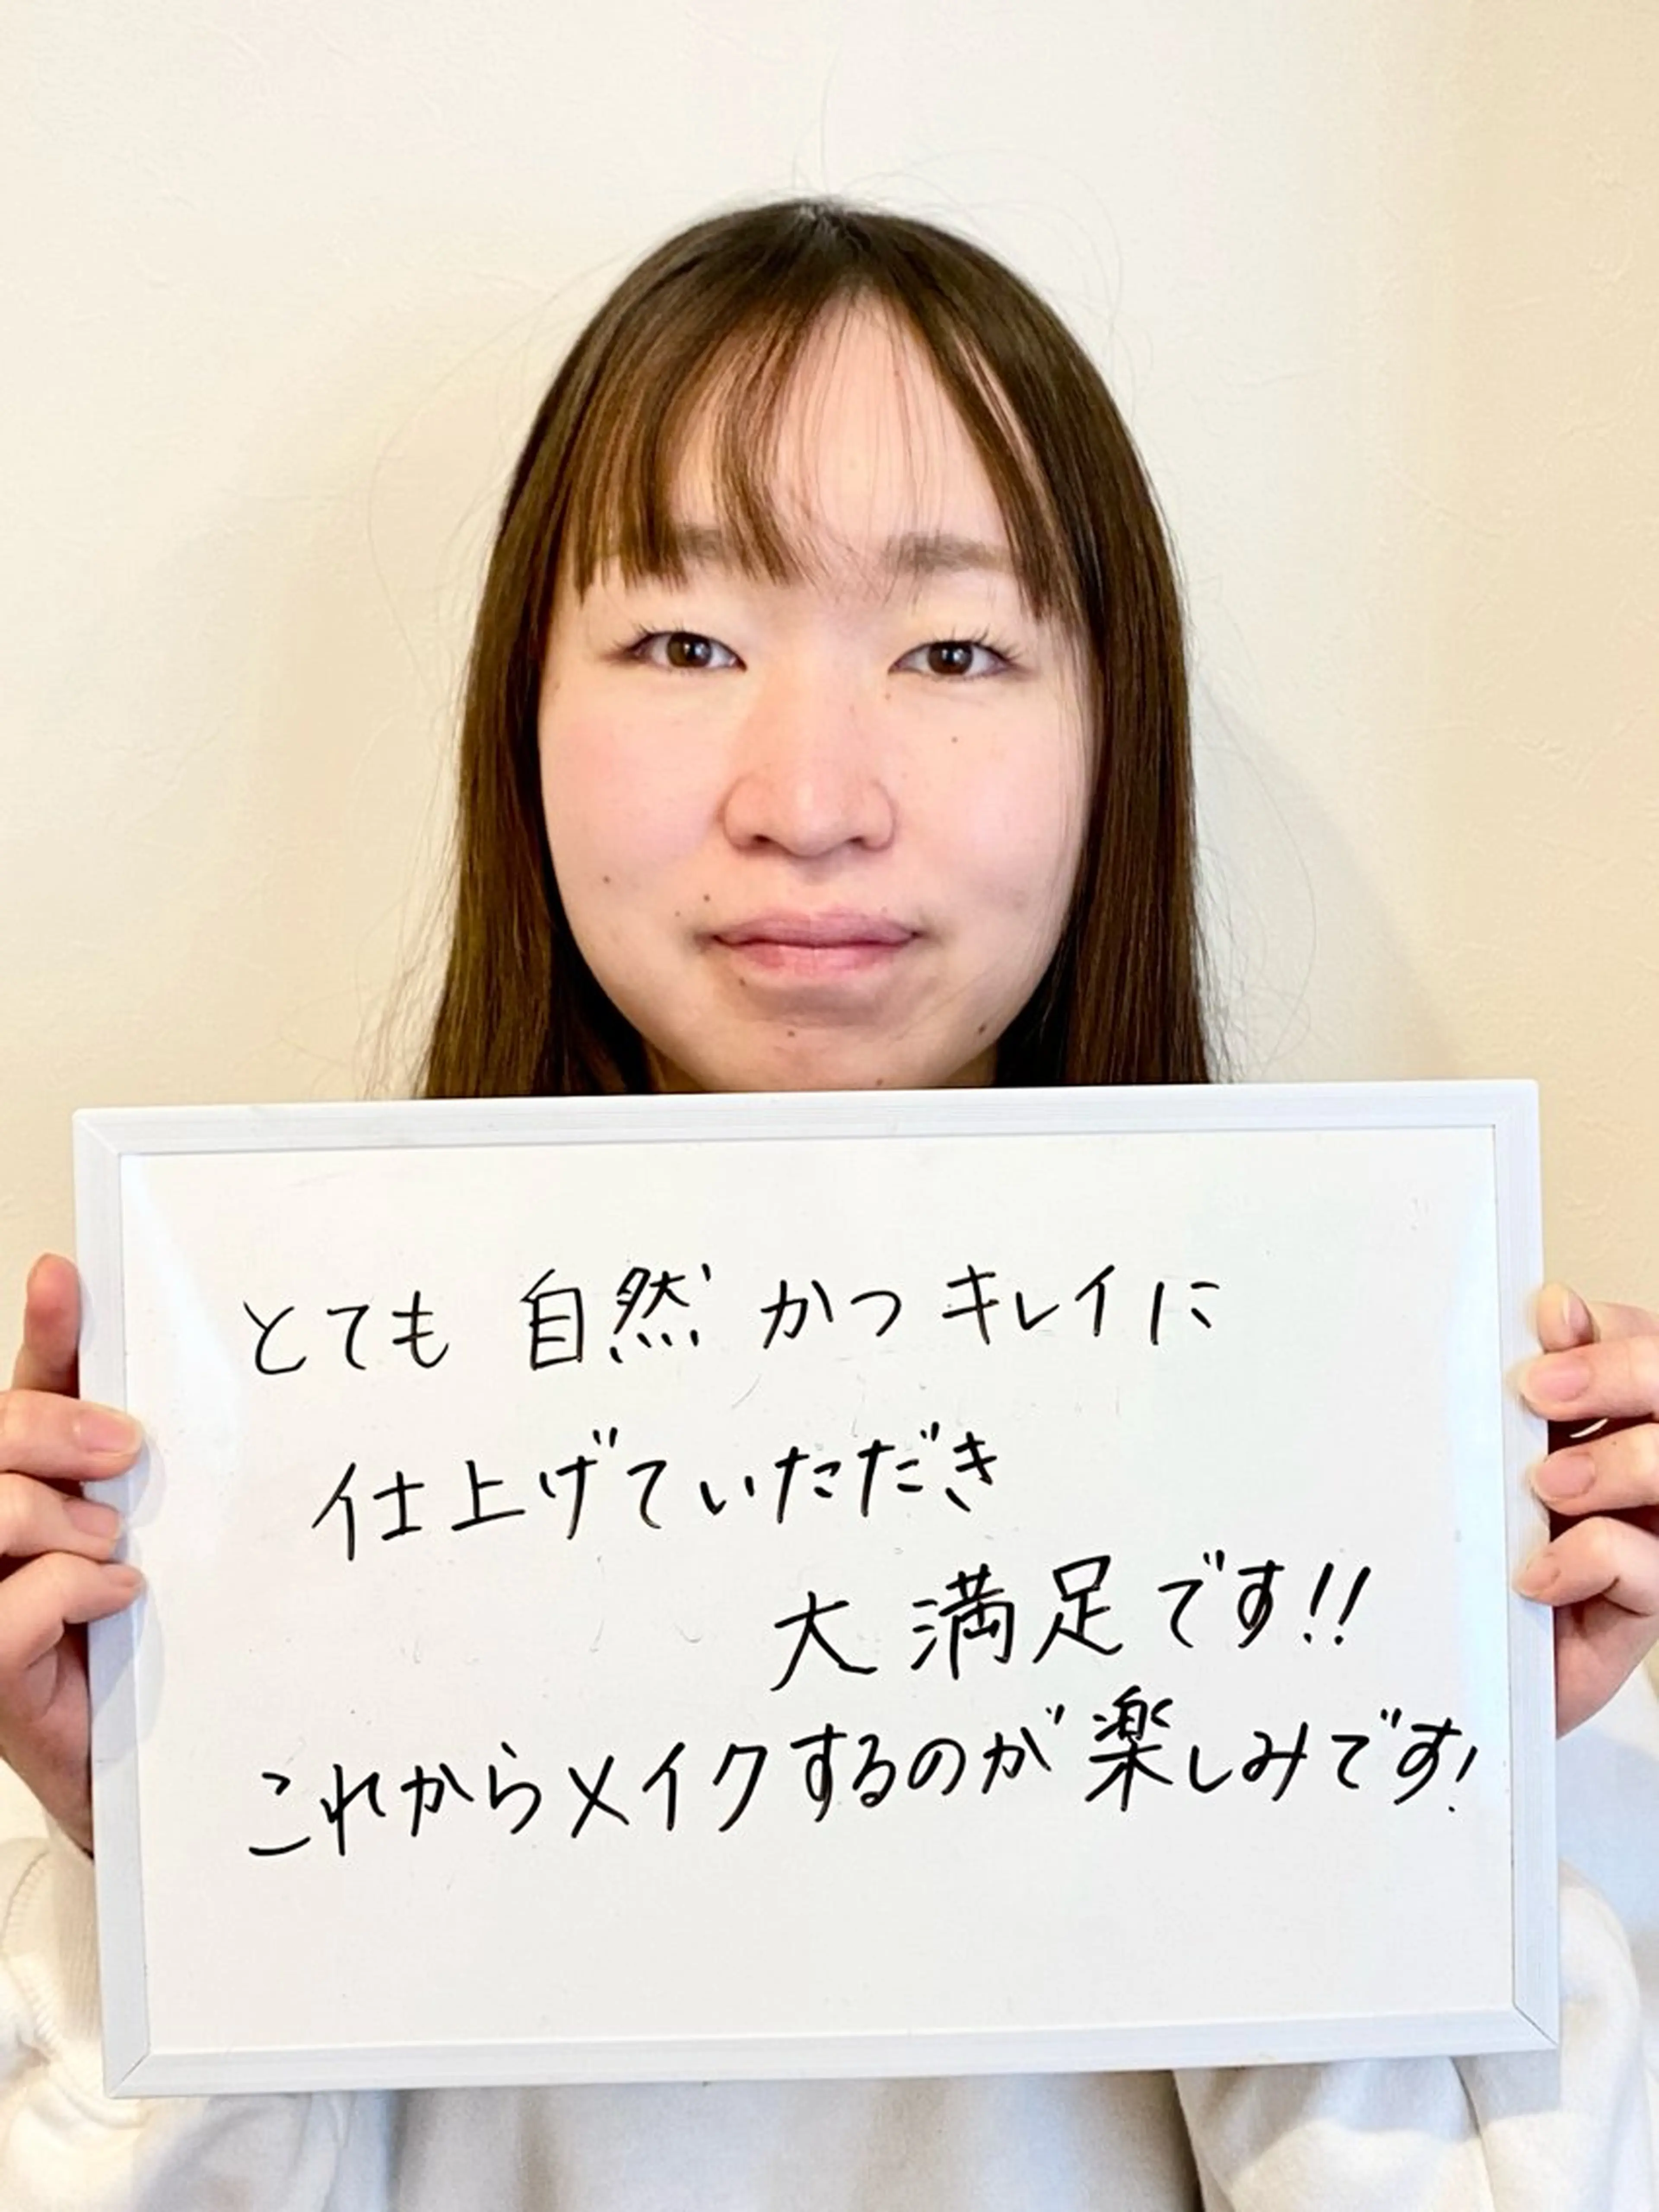 とても 自然 かつ キレイに
仕上げていただき
大満足です!!
これからメイクするのが楽しみです!